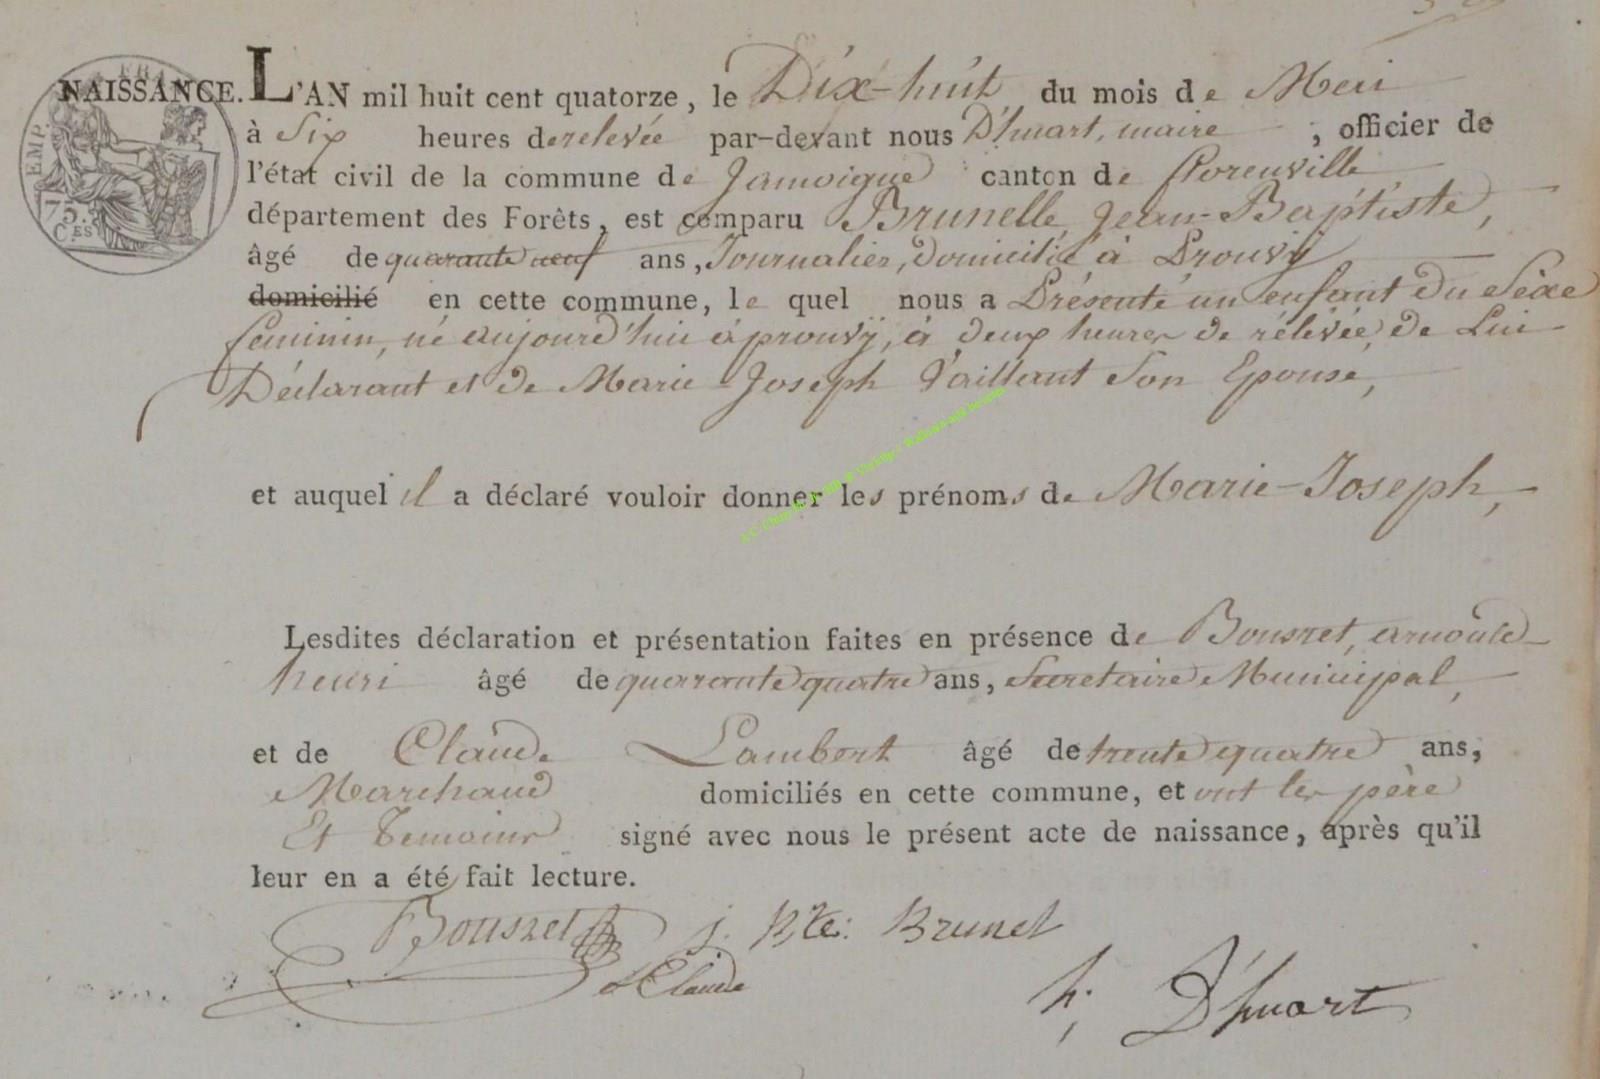 EMP. FRA
75. C.ES
NAISSANCE. L'AN mil huit cent quatorze, le Dix-huit du mois de Mai
à Six heures de relevée par-devant nous D'huart, maire, officier de
l'état civil de la commune de Jamoigne canton de florenville
département des Forêts, est comparu Brunelle, Jean-Baptiste,
âgé de quarante neuf ans, Journalier, domicilié à Prouvÿ
domicilié en cette commune, le quel nous a Présenté un enfant du Séxe
feminin, né aujourd'hui à prouvÿ, à deux heures de rélévée, de Lui
Déclarant et de Marie-Joseph Vaillant Son Epouse,
et auquel il a déclaré vouloir donner les prénoms de Marie-Joseph,
Lesdites déclaration et présentation faites en présence de Bousret, arnould
henri âgé de quarante quatre ans, Secretaire Municipal,
et de Claude Lambert âgé de trente quatre ans,
Marchand domiciliés en cette commune, et ont les père
Et Temoins signé avec nous le présent acte de naissance, après qu'il
leur en a été fait lecture.
Bousret j. Bte: Brunel
Claude
h. D'huart